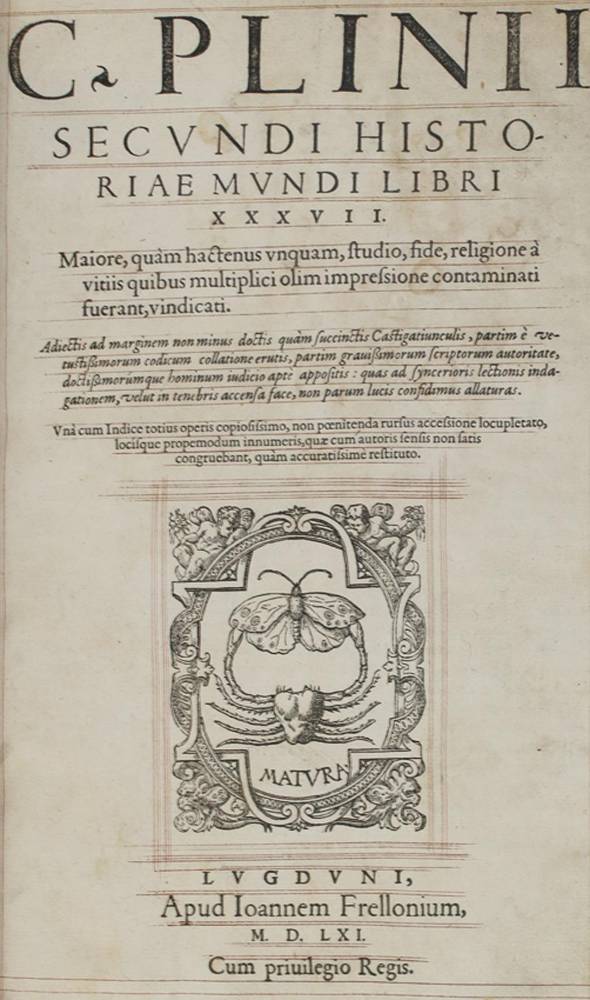 C. PLINII
SECVNDI HISTO-
RIAE MVNDI LIBRI
XXXVII.
Maiore, quàm hactenus vnquam, ſtudio, fide, religione à
vitiis quibus multiplici olim impreſsione contaminati
fuerant, vindicati.
Adiectis ad marginem non minus doctis quàm ſuccinctis Caſtigatiunculis, partim è ve-
tuſtiſſimorum codicum collatione erutis, partim grauiſſimorum ſcriptorum autoritate,
doctiſſimorumque hominum iudicio aptè appoſitis: quas ad ſyncerioris lectionis inda-
gationem, velut in tenebris accenſa face, non parum lucis confidimus allaturas.
Vnà cum Indice totius operis copioſiſsimo, non pœnitenda rurſus acceſsione locupletato,
lociſque propemodum innumeris, quæ cum autoris ſenſis non ſatis
congruebant, quàm accuratiſsimè reſtituto.
MATVRA
LVGDVNI,
Apud Ioannem Frellonium,
M. D. LXI.
Cum priuilegio Regis.